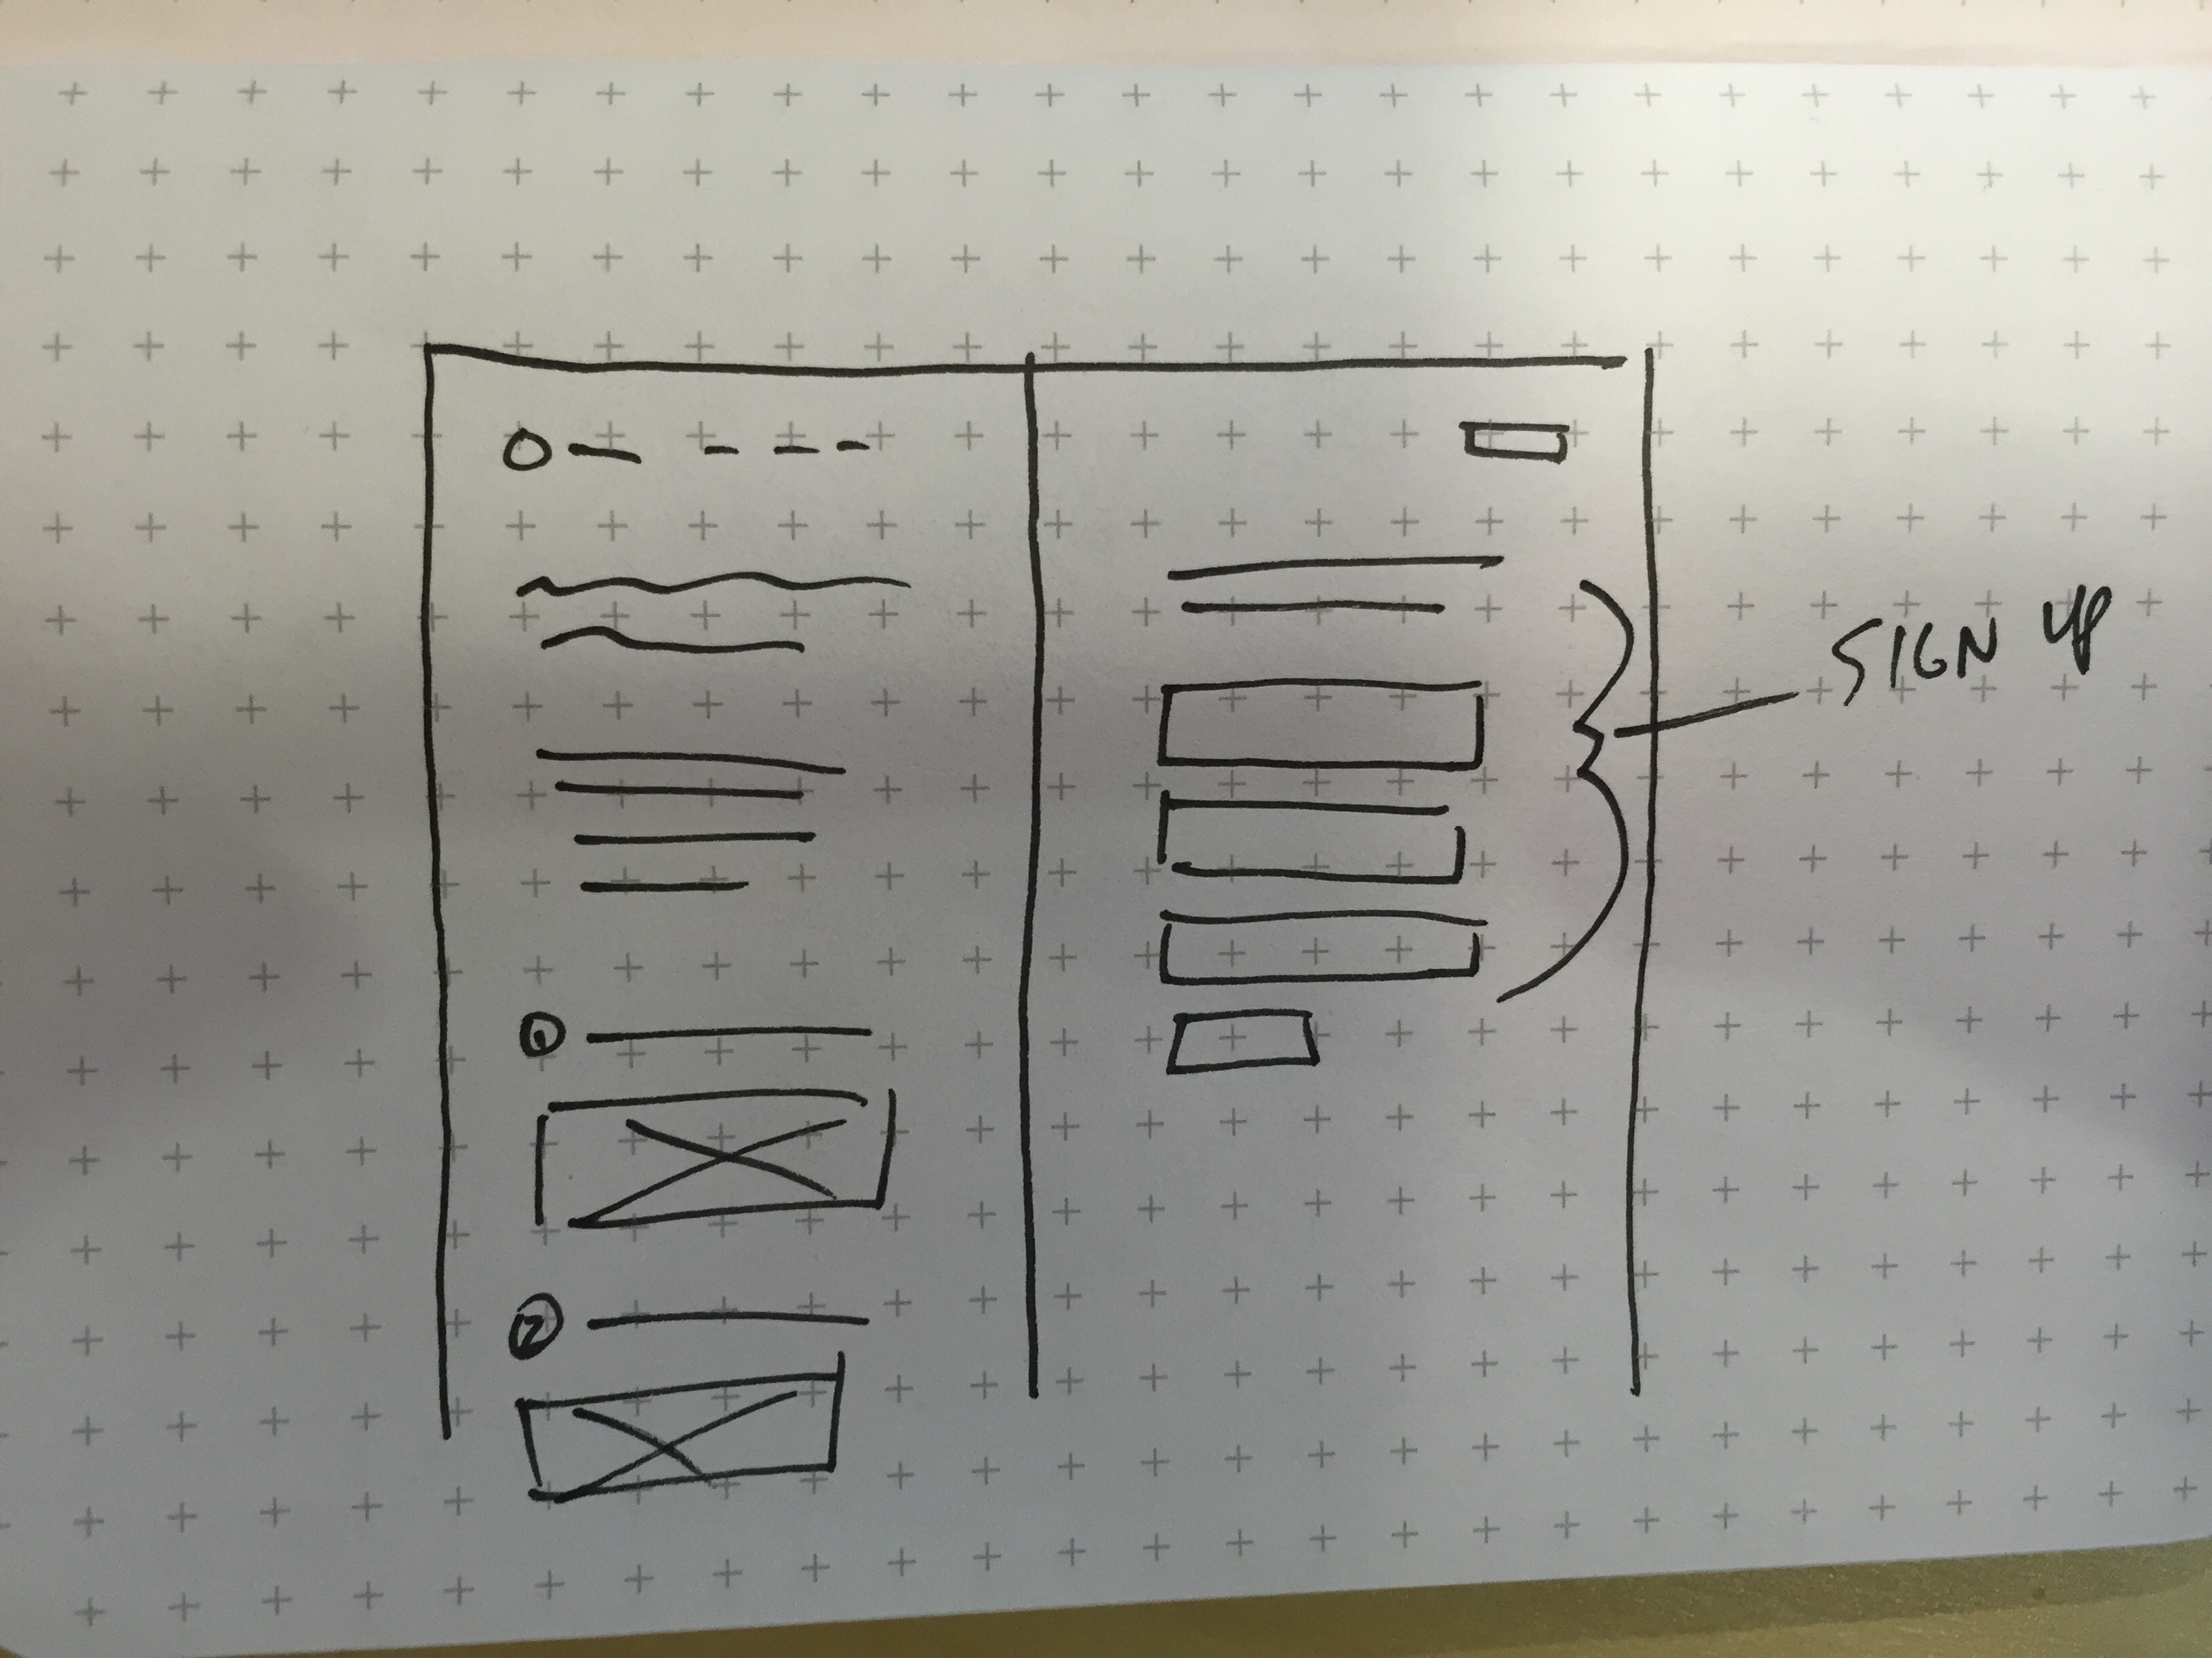 1
2
SIGN UP